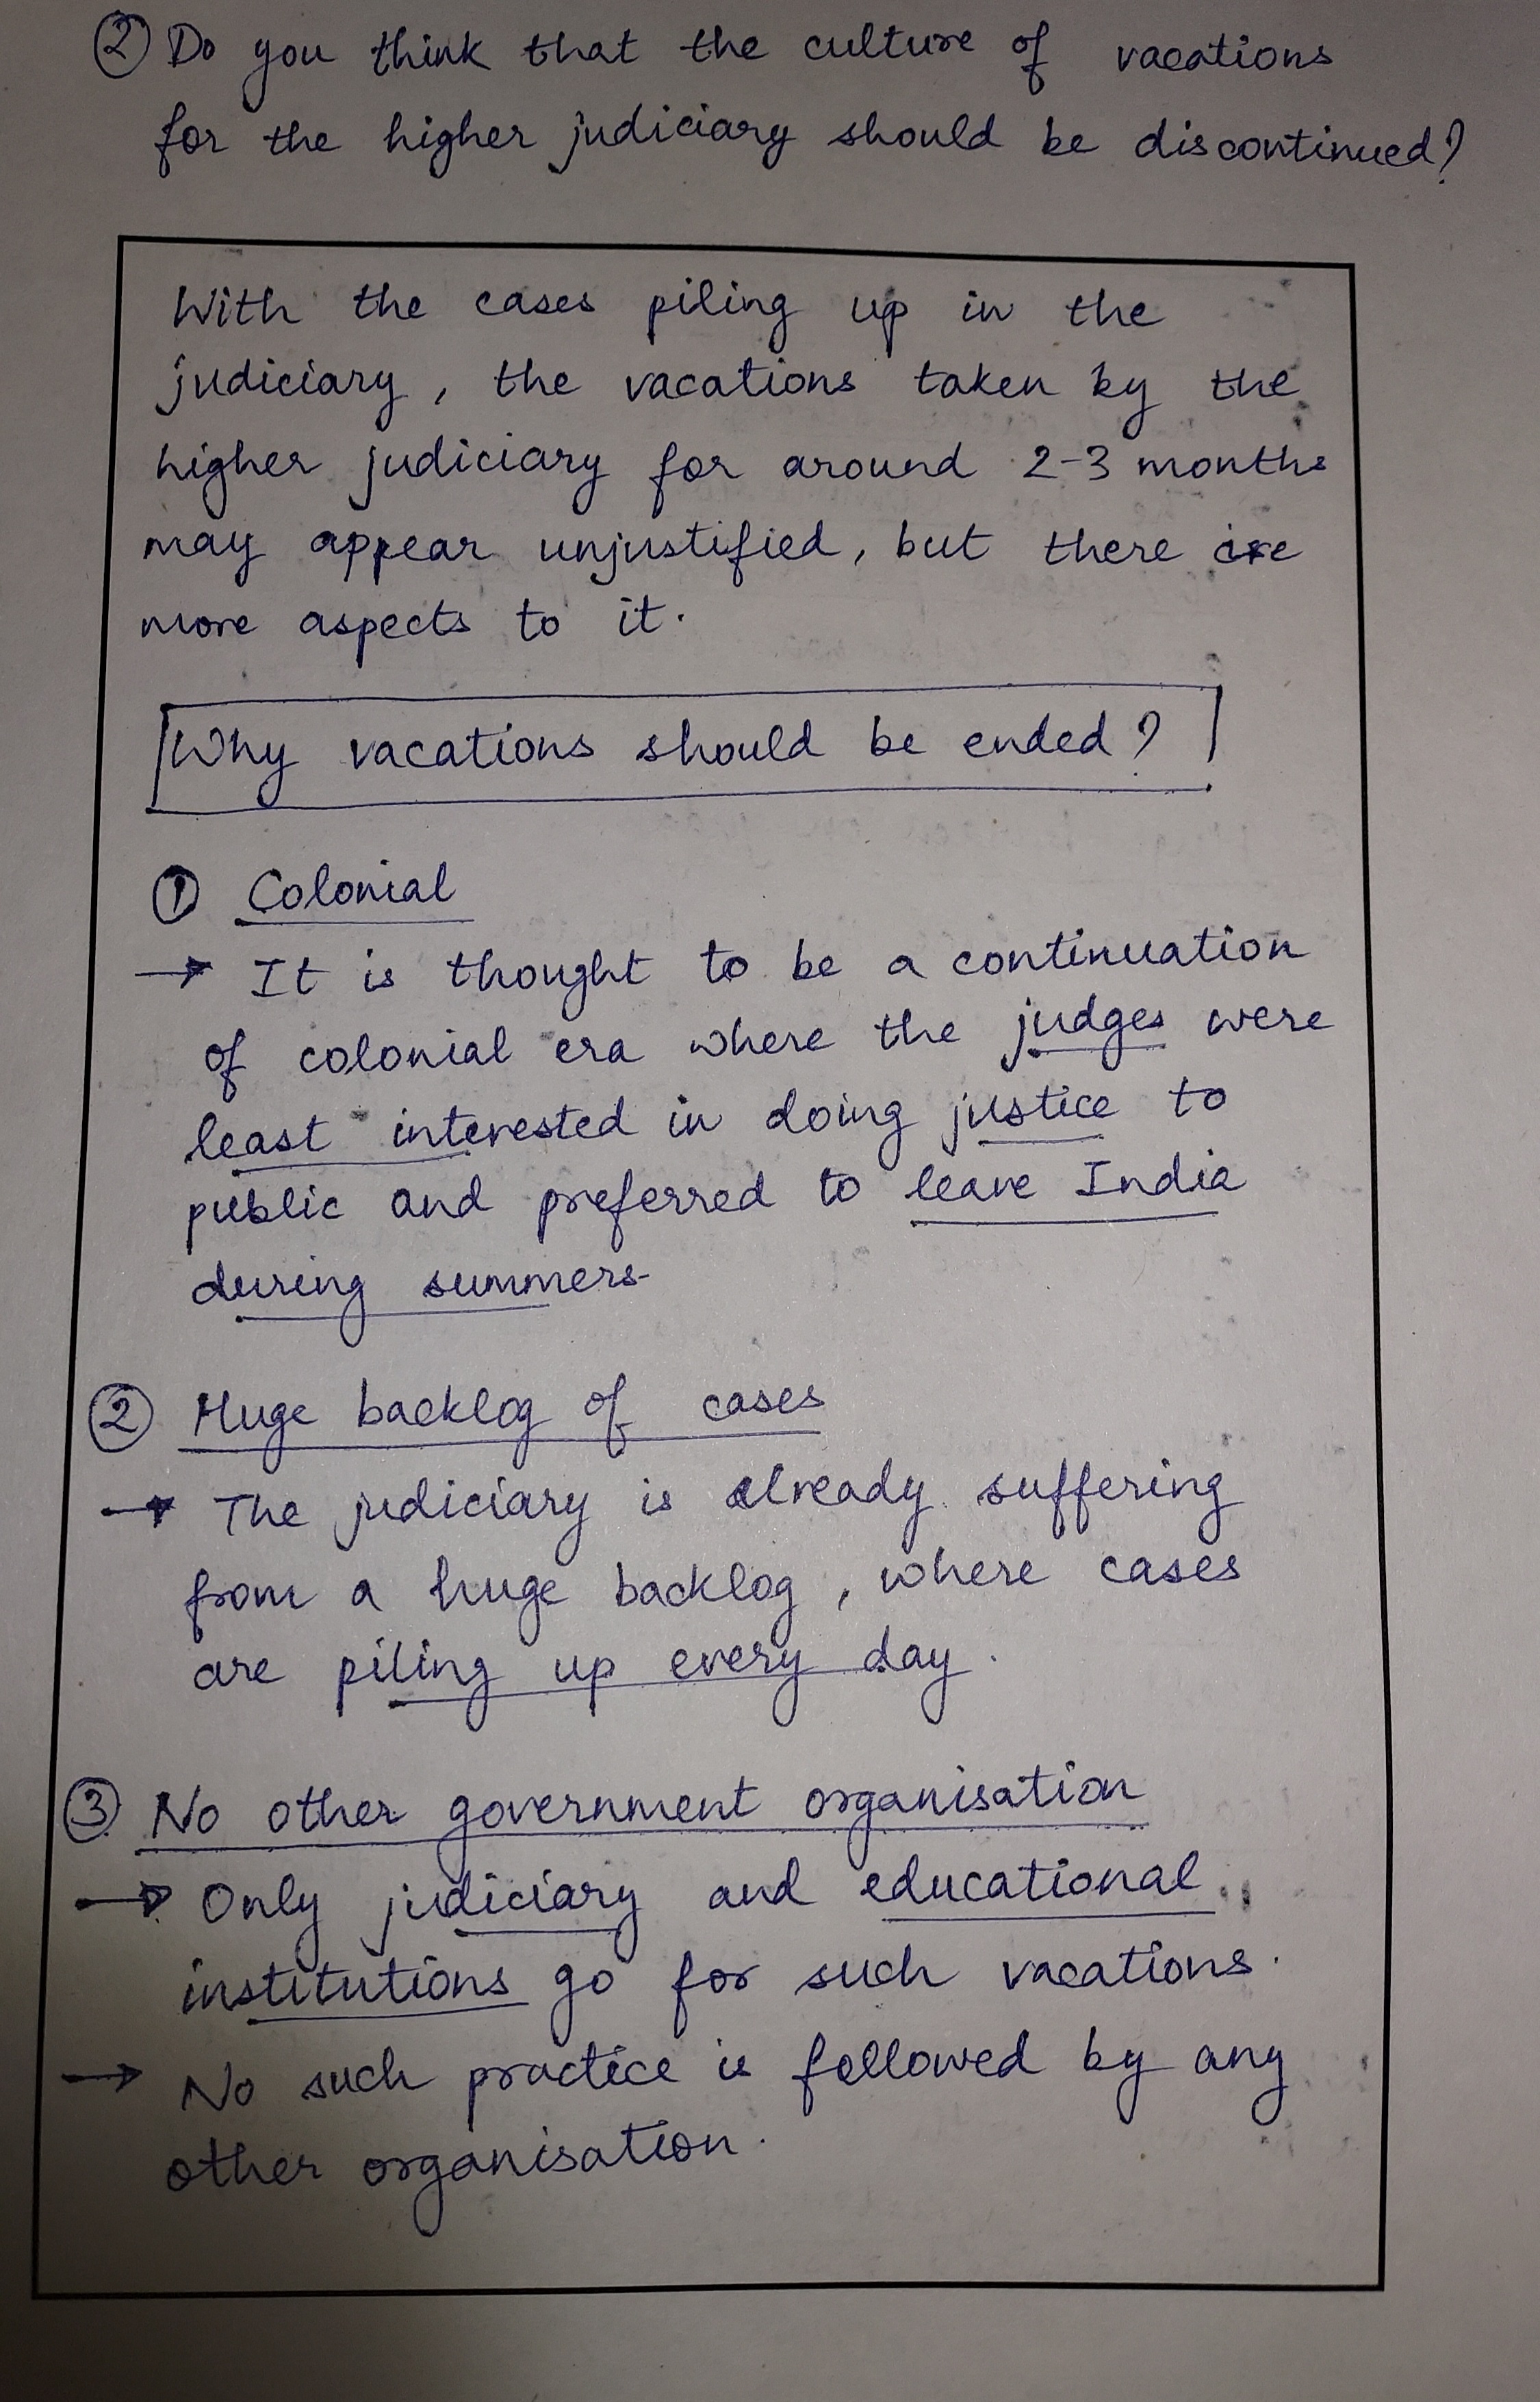 ② Do you think that the culture of vacations
for the higher judiciary should be discontinued?
With the cases piling up in the
judiciary, the vacations taken by the
higher judiciary for around 2-3 months
may appear unjustified, but there are
more aspects to it.
Why vacations should be ended?
① Colonial
→ It is thought to be a continuation
of colonial era where the judges were
least interested in doing justice to
public and preferred to leave India
during summers.
② Huge backlog of cases
→ The judiciary is already suffering
from a huge backlog, where cases
are piling up every day.
③ No other government organisation
→ Only judiciary and educational
institutions go for such vacations.
→ No such practice is followed by any
other organisation.